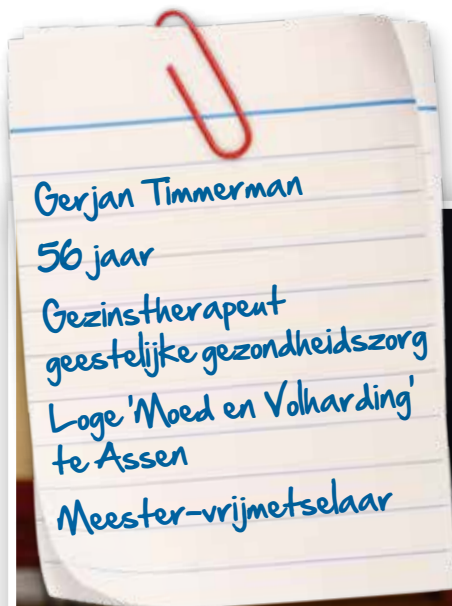 Gerjan Timmerman
56 jaar
Gezinstherapeut
geestelijke gezondheidszorg
Loge 'Moed en Volharding'
te Assen
Meester-vrijmetselaar